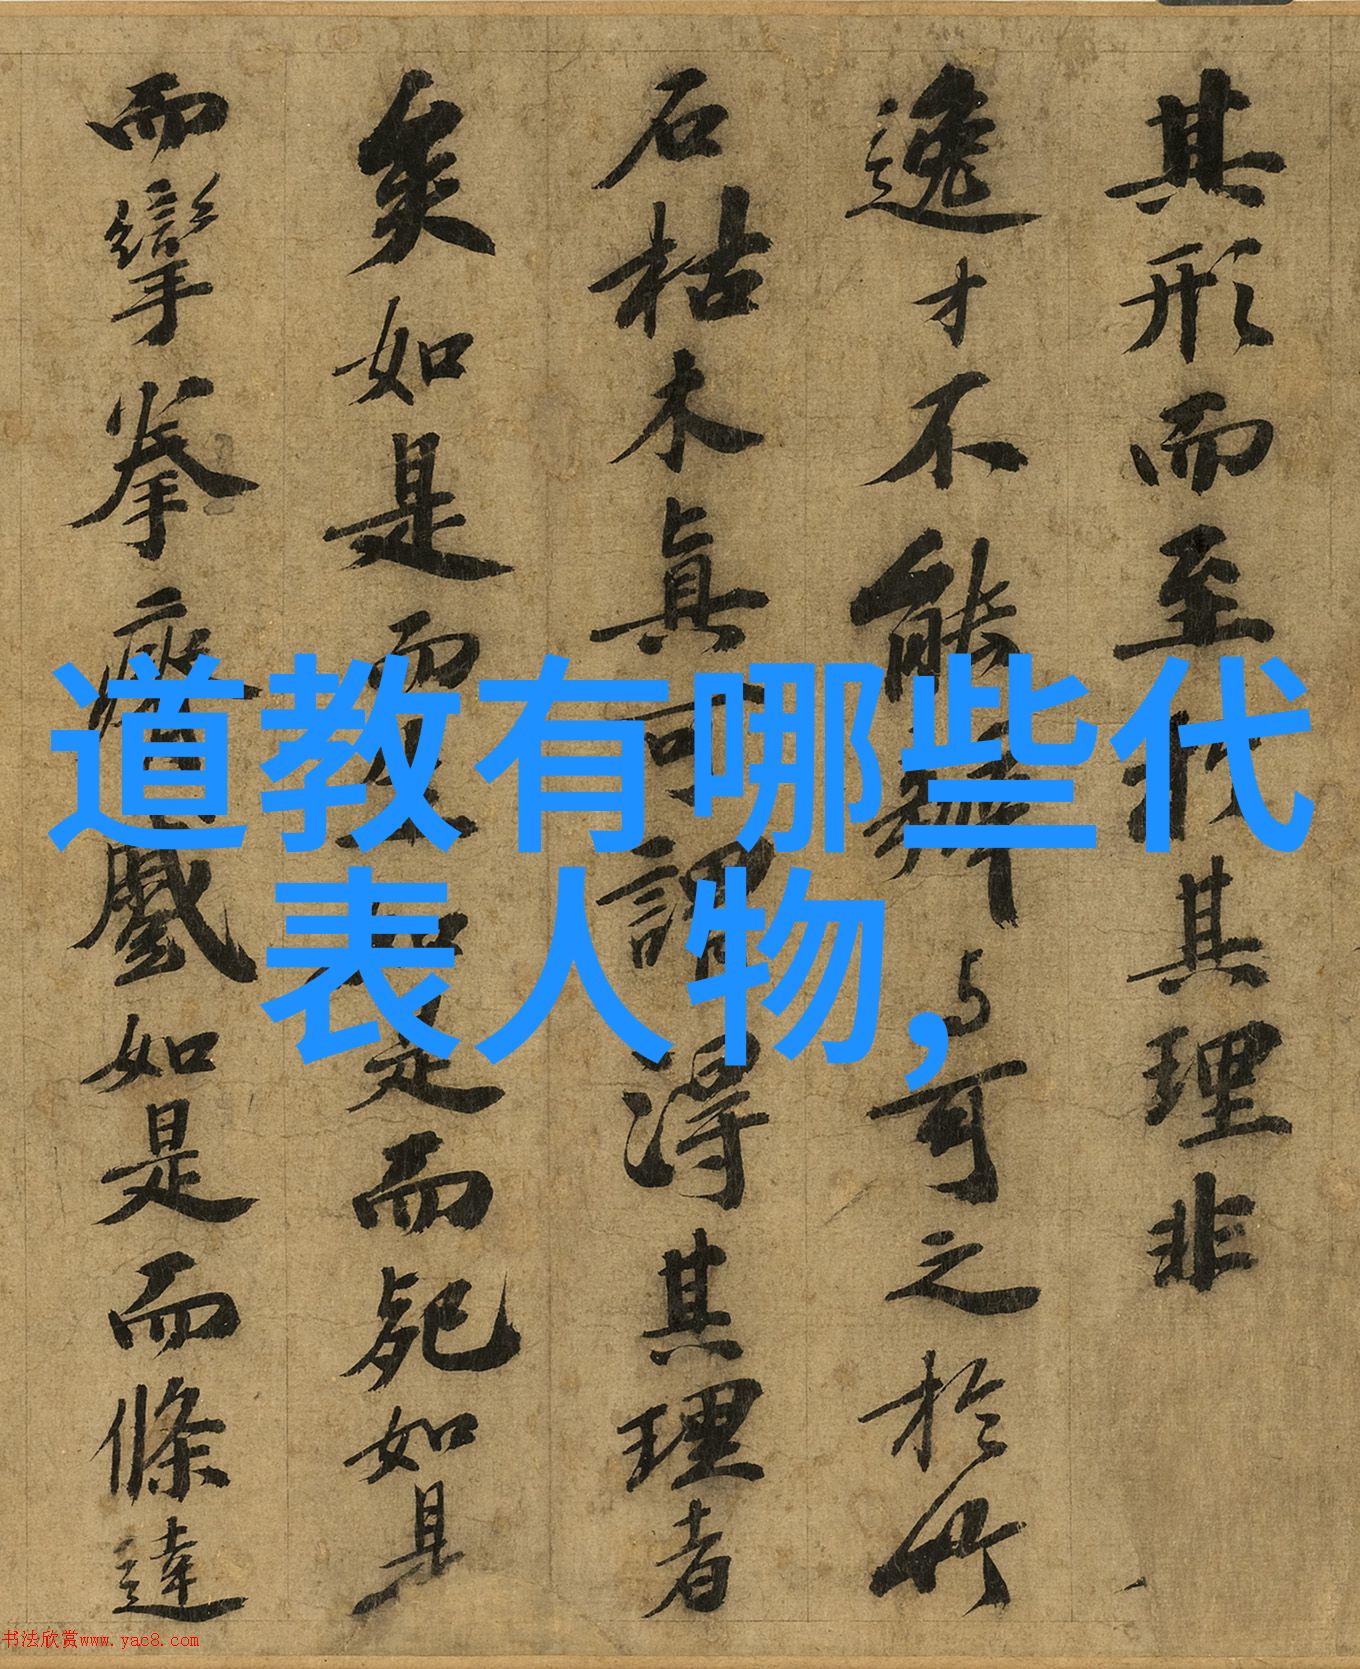 道教有哪些代
表人物,
其形而至於其理非
逸才不能辨与可之於竹
石枯木眞可謂得其理者
矣如是而生如是而死如是
而攣拳瘠蹙如是而條達
书法欣赏www.yac8.com